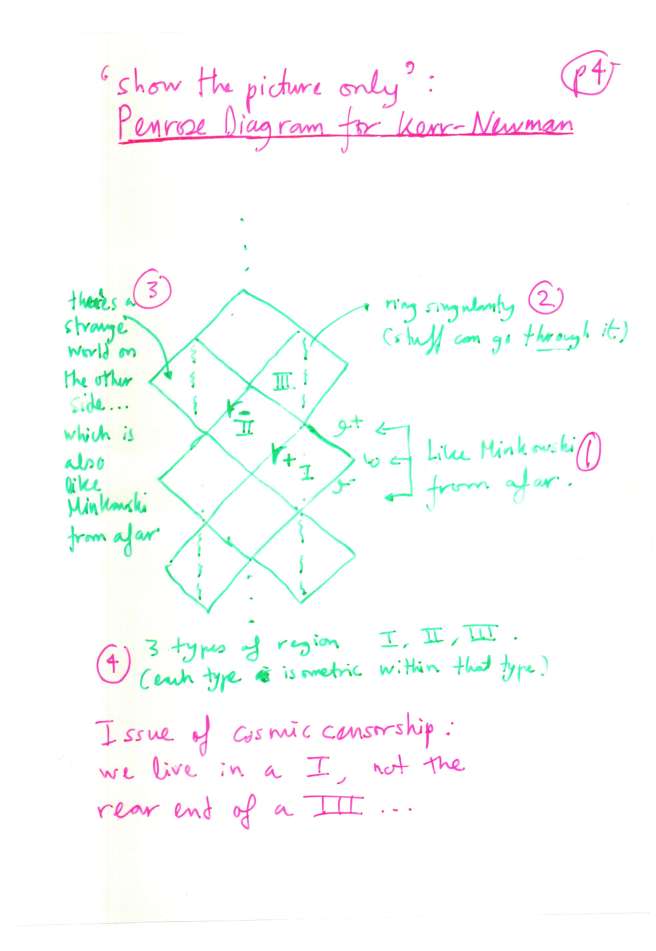 “show the picture only”:
p4
Penrose Diagram for Kerr-Newman
③
there's a
strange
world on
the other
side...
which is
also
like
Minkowski
from afar
ring singularity ②
(stuff can go through it)
III
r-
II
r+
I
I+
i0
I-
Like Minkowski ①
from afar.
④ 3 types of region I, II, III.
(each type is isometric within that type.)
Issue of cosmic censorship:
we live in a I, not the
rear end of a III ...